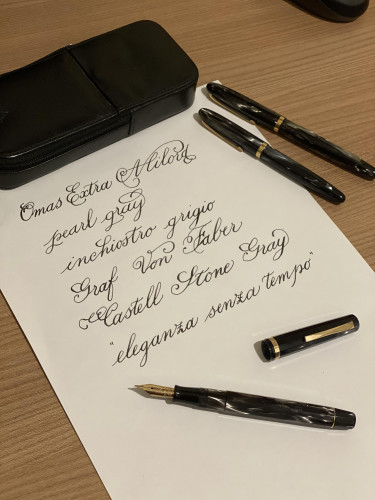 Omas Extra Milord
pearl gray
inchiostro grigio
Graf Von Faber
Castell Stone Gray
"eleganza senza tempo"